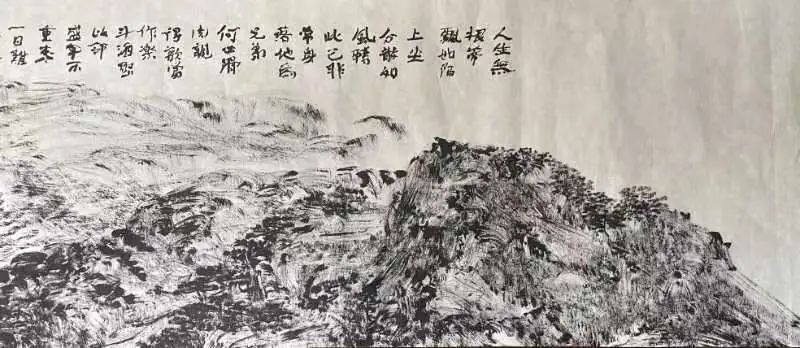 人生無
根蒂
飄如陌
上尘
分散逐
風轉
此已非
常身
落地為
兄弟
何必骨
肉親
得歡當
作樂
斗酒聚
比鄰
盛年不
重来
一日難